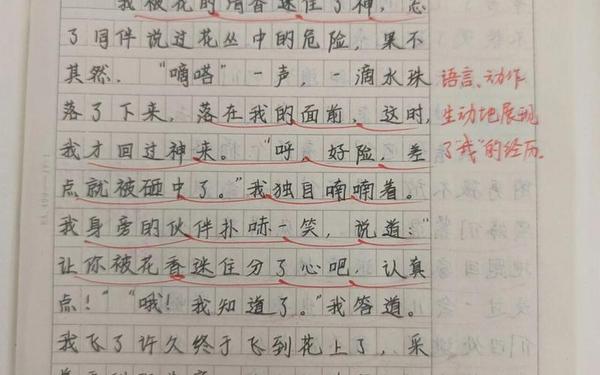 我被花的清香迷住了神，忘
了同伴说过花丛中的危险，果不
其然，“嘀嗒”一声，一滴水珠
落了下来，落在我的面前，这时，
我才回过神来。“呼，好险，差
点就被砸中了。”我独自喃喃着。
我身旁的伙伴扑哧一笑，说道：“
让你被花香迷住分了心吧，认真
点！”“哦！我知道了。”我答道。
我飞了许久终于飞到花上了，采
语言、动作
生动地展现
了“我”的经历。